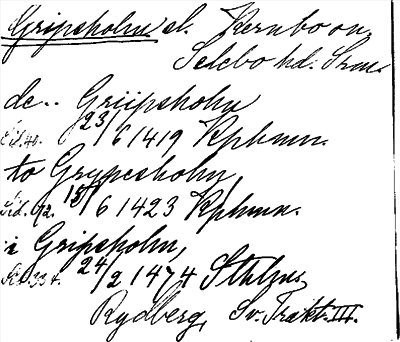 Gripsholm el. Kernbo sn,
Selebo hd. Srm.
de.. Griipsholm
23/6 1419 Kphmn.
to Grypesholm,
15/6 1423 Kphmn.
i Gripsholm,
24/2 1474 Sthlm,
Rydberg, Sv. Trakt. III.